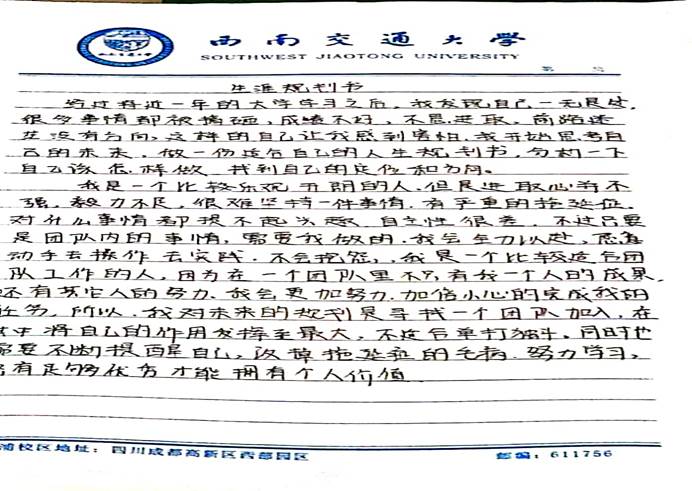 西南交通大学
SOUTHWEST JIAOTONG UNIVERSITY
第 号
生涯规划书
经过将近一年的大学学习之后,我发现自己一无是处,
很多事情都被搞砸,成绩不好,不思进取,前路迷
茫没有方向,这样的自己让我感到害怕,我开始思考自
己的未来,做一份适合自己的人生规划书,勾勒一下
自己该怎样做,找到自己的定位和方向。
我是一个比较乐观开朗的人,但是进取心并不
强,毅力不足,很难坚持一件事情,有严重的拖延症,
对什么事情都提不起兴趣,自主性很差,不过只要
是团队内的事情,需要我做的,我会全力以赴,愿意
动手去操作去实践,不会抱怨,我是一个比较适合团
队工作的人,因为在一个团队里不只有我一个人的成果,
还有其它人的努力,我会更加努力,加倍小心的完成我的
任务,所以,我对未来的规划是寻找一个团队加入,在
其中将自己的作用发挥至最大,不适合单打独斗,同时也
需要不断提醒自己,改掉拖延症的毛病,努力学习,
有足够优秀才能拥有个人价值
浦校区地址:四川成都高新区西部园区
邮编:611756